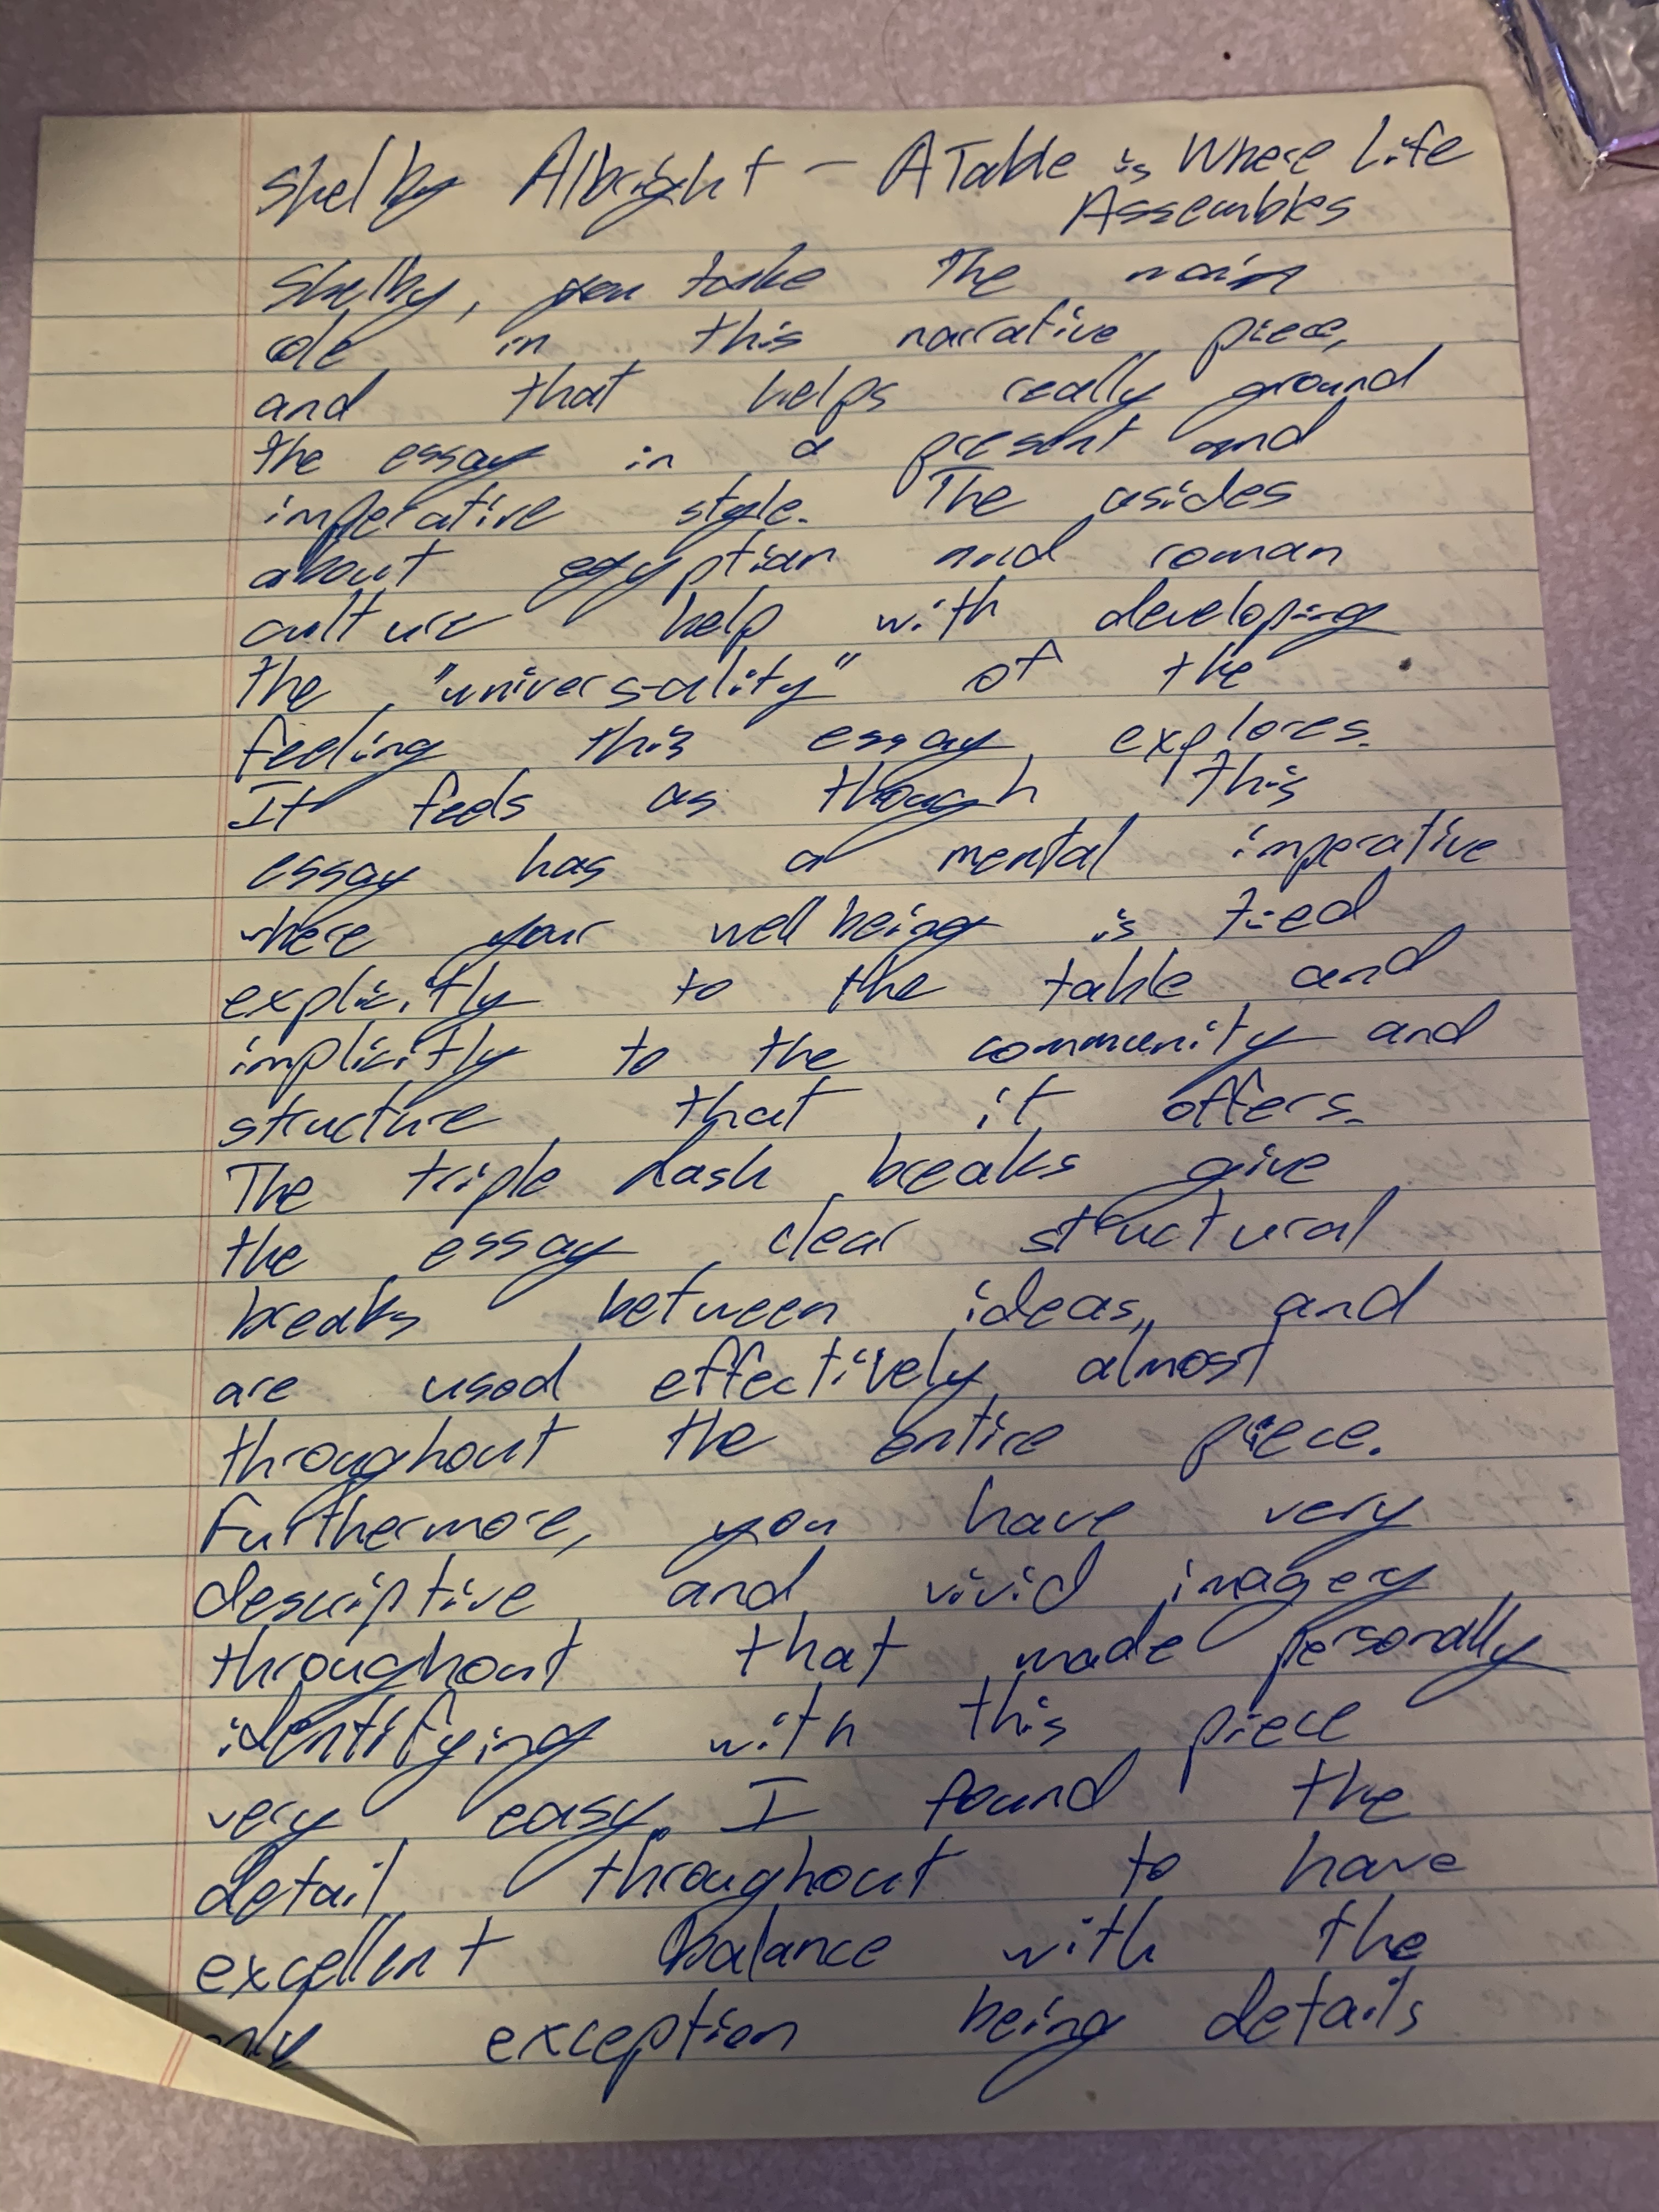 Shelby Albright - A Table is Where Life
Assembles
Shelby, you take The main
role in this narrative piece,
and that helps really ground
the essay in a present and
imperative style. The asides
about egyptian and roman
culture help with developing
the "universality" of the
feeling this essay explores.
It feels as though this
essay has a mental imperative
where your well being is tied
explicitly to the table and
implicitly to the community and
structure that it offers.
The triple dash breaks give
the essay clear structural
breaks between ideas, and
are used effectively almost
throughout the entire piece.
Furthermore, you have very
descriptive and vivid imagery
throughout that made personally
identifying with this piece
very easy. I found the
detail throughout to have
excellent balance with the
only exception being details